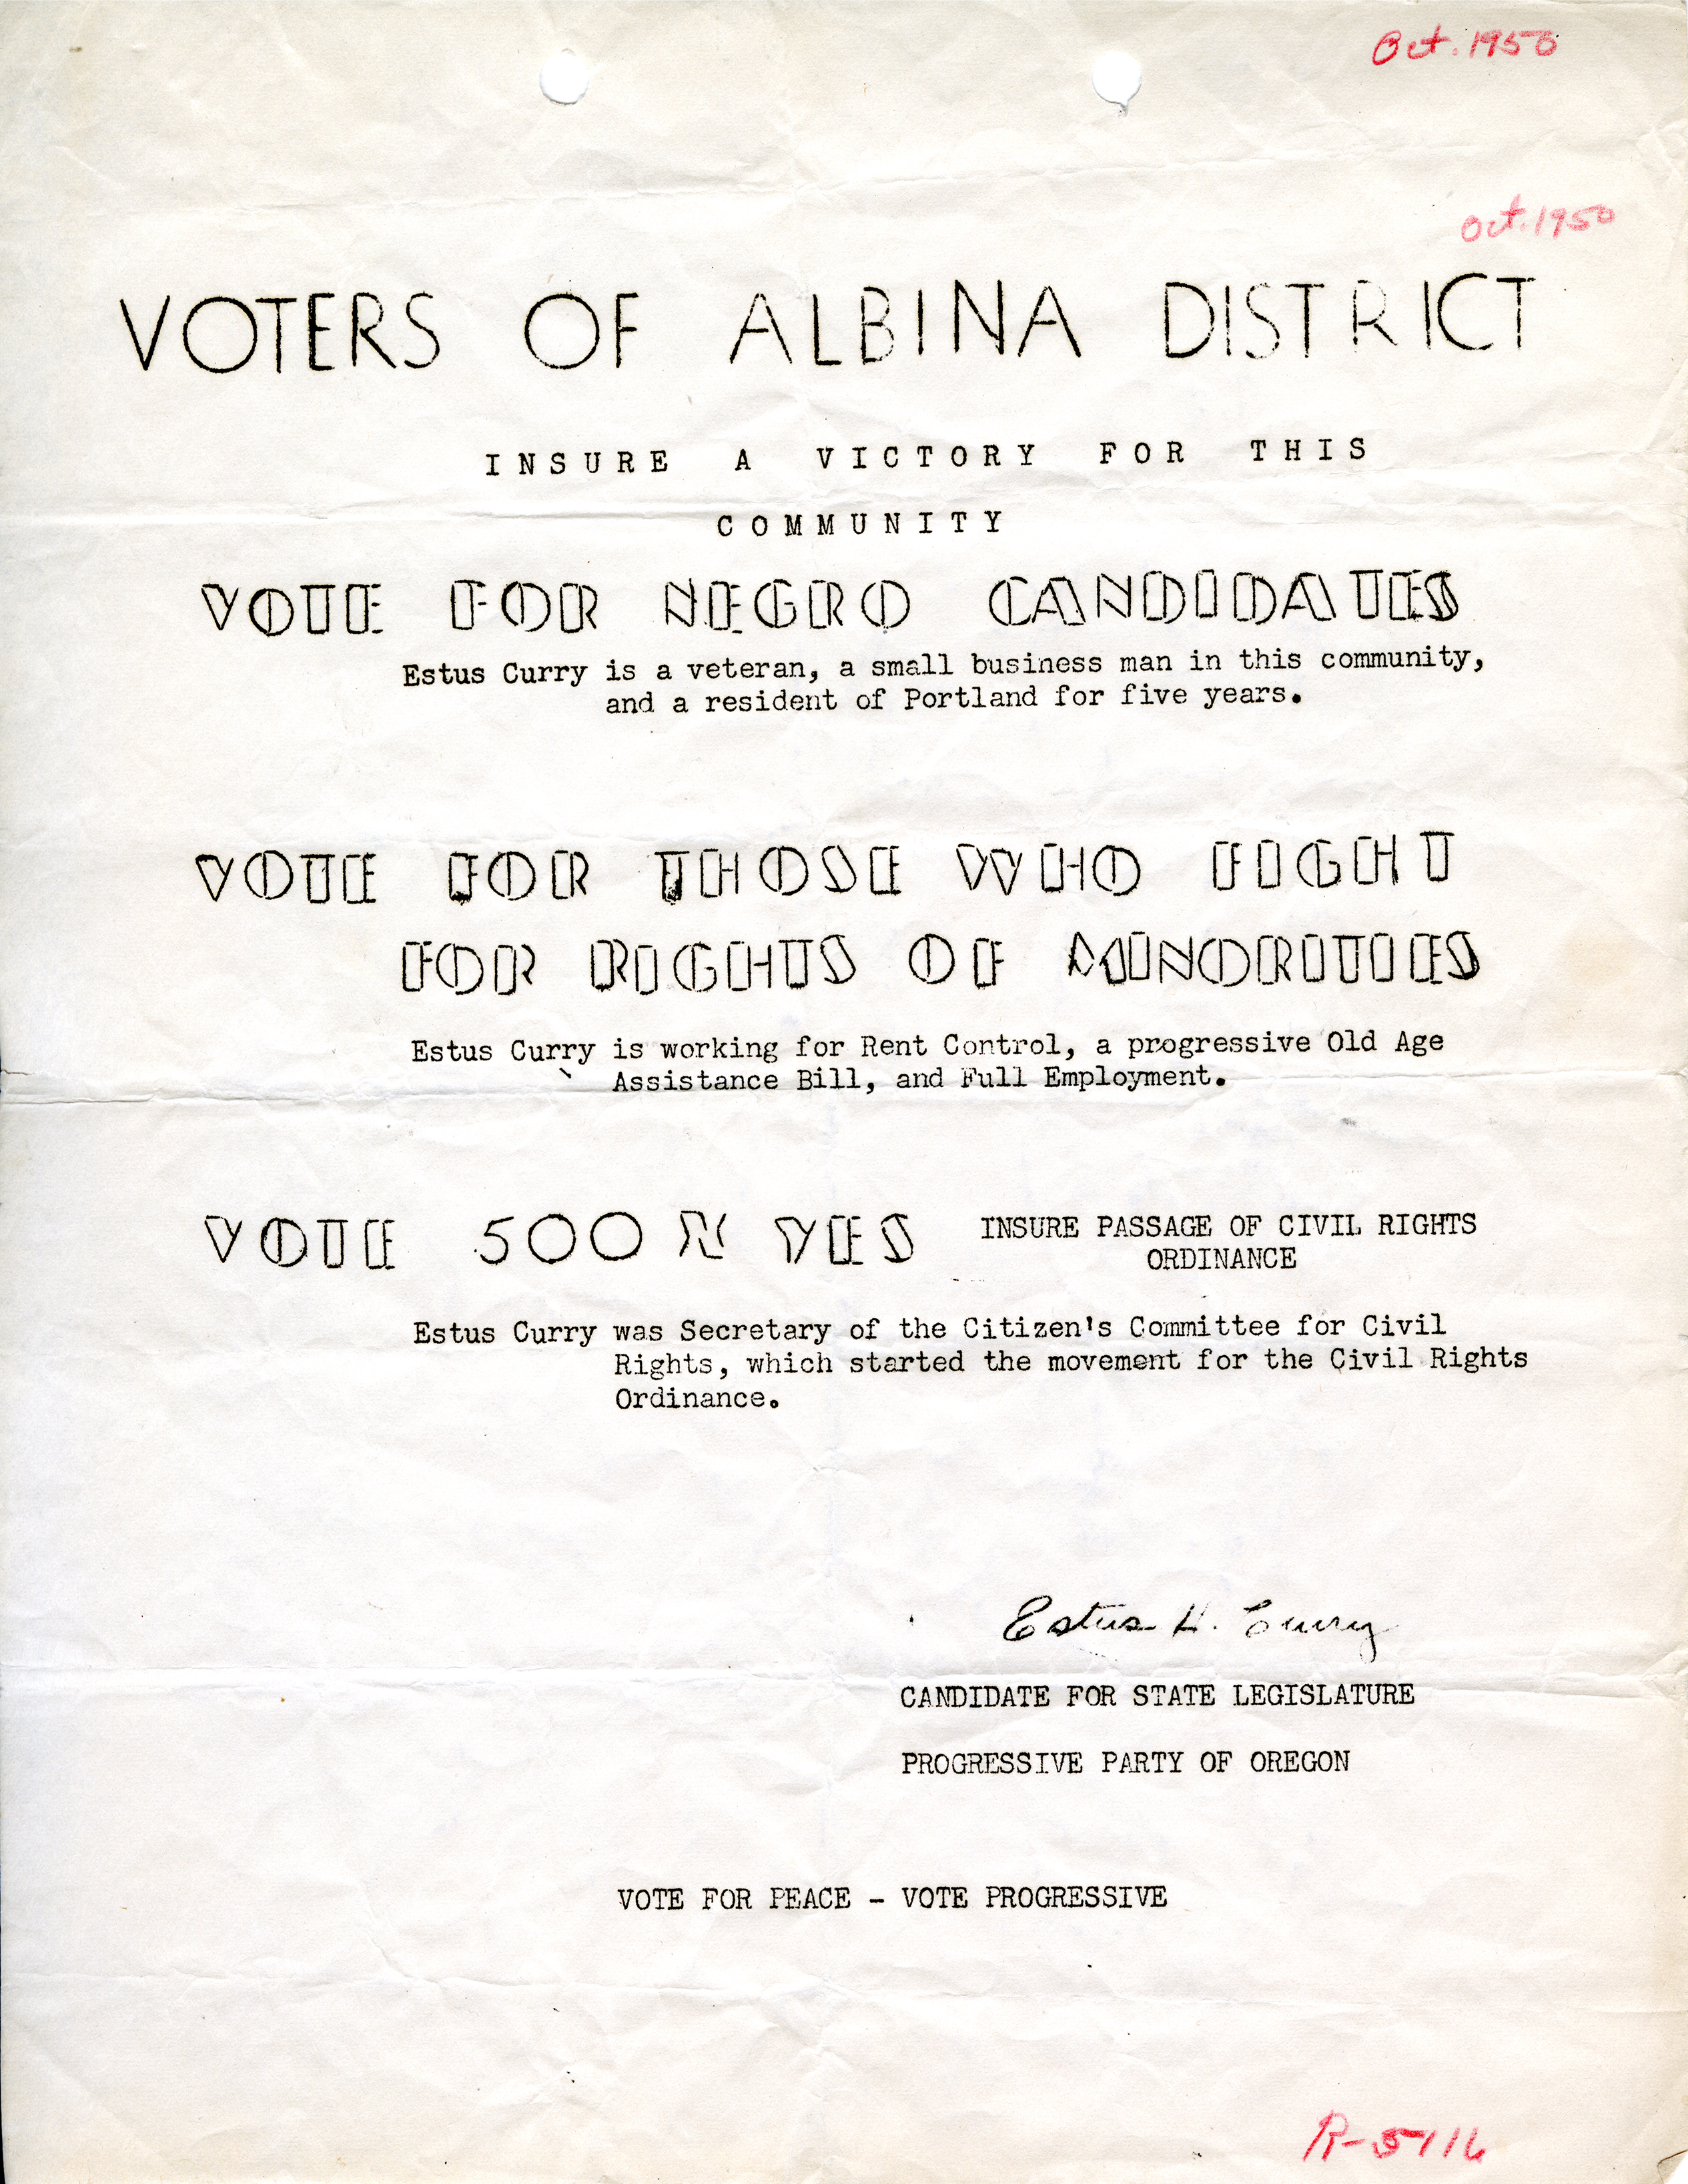 Oct. 1950
Oct. 1950
VOTERS OF ALBINA DISTRICT
INSURE A VICTORY FOR THIS
COMMUNITY
VOTE FOR NEGRO CANDIDATES
Estus Curry is a veteran, a small business man in this community,
and a resident of Portland for five years.
VOTE FOR THOSE WHO FIGHT
FOR RIGHTS OF MINORITIES
Estus Curry is working for Rent Control, a progressive Old Age
Assistance Bill, and Full Employment.
VOTE 500 X YES INSURE PASSAGE OF CIVIL RIGHTS
ORDINANCE
Estus Curry was Secretary of the Citizen's Committee for Civil
Rights, which started the movement for the Civil Rights
Ordinance.
Estus H. Curry
CANDIDATE FOR STATE LEGISLATURE
PROGRESSIVE PARTY OF OREGON
VOTE FOR PEACE - VOTE PROGRESSIVE
R-5716